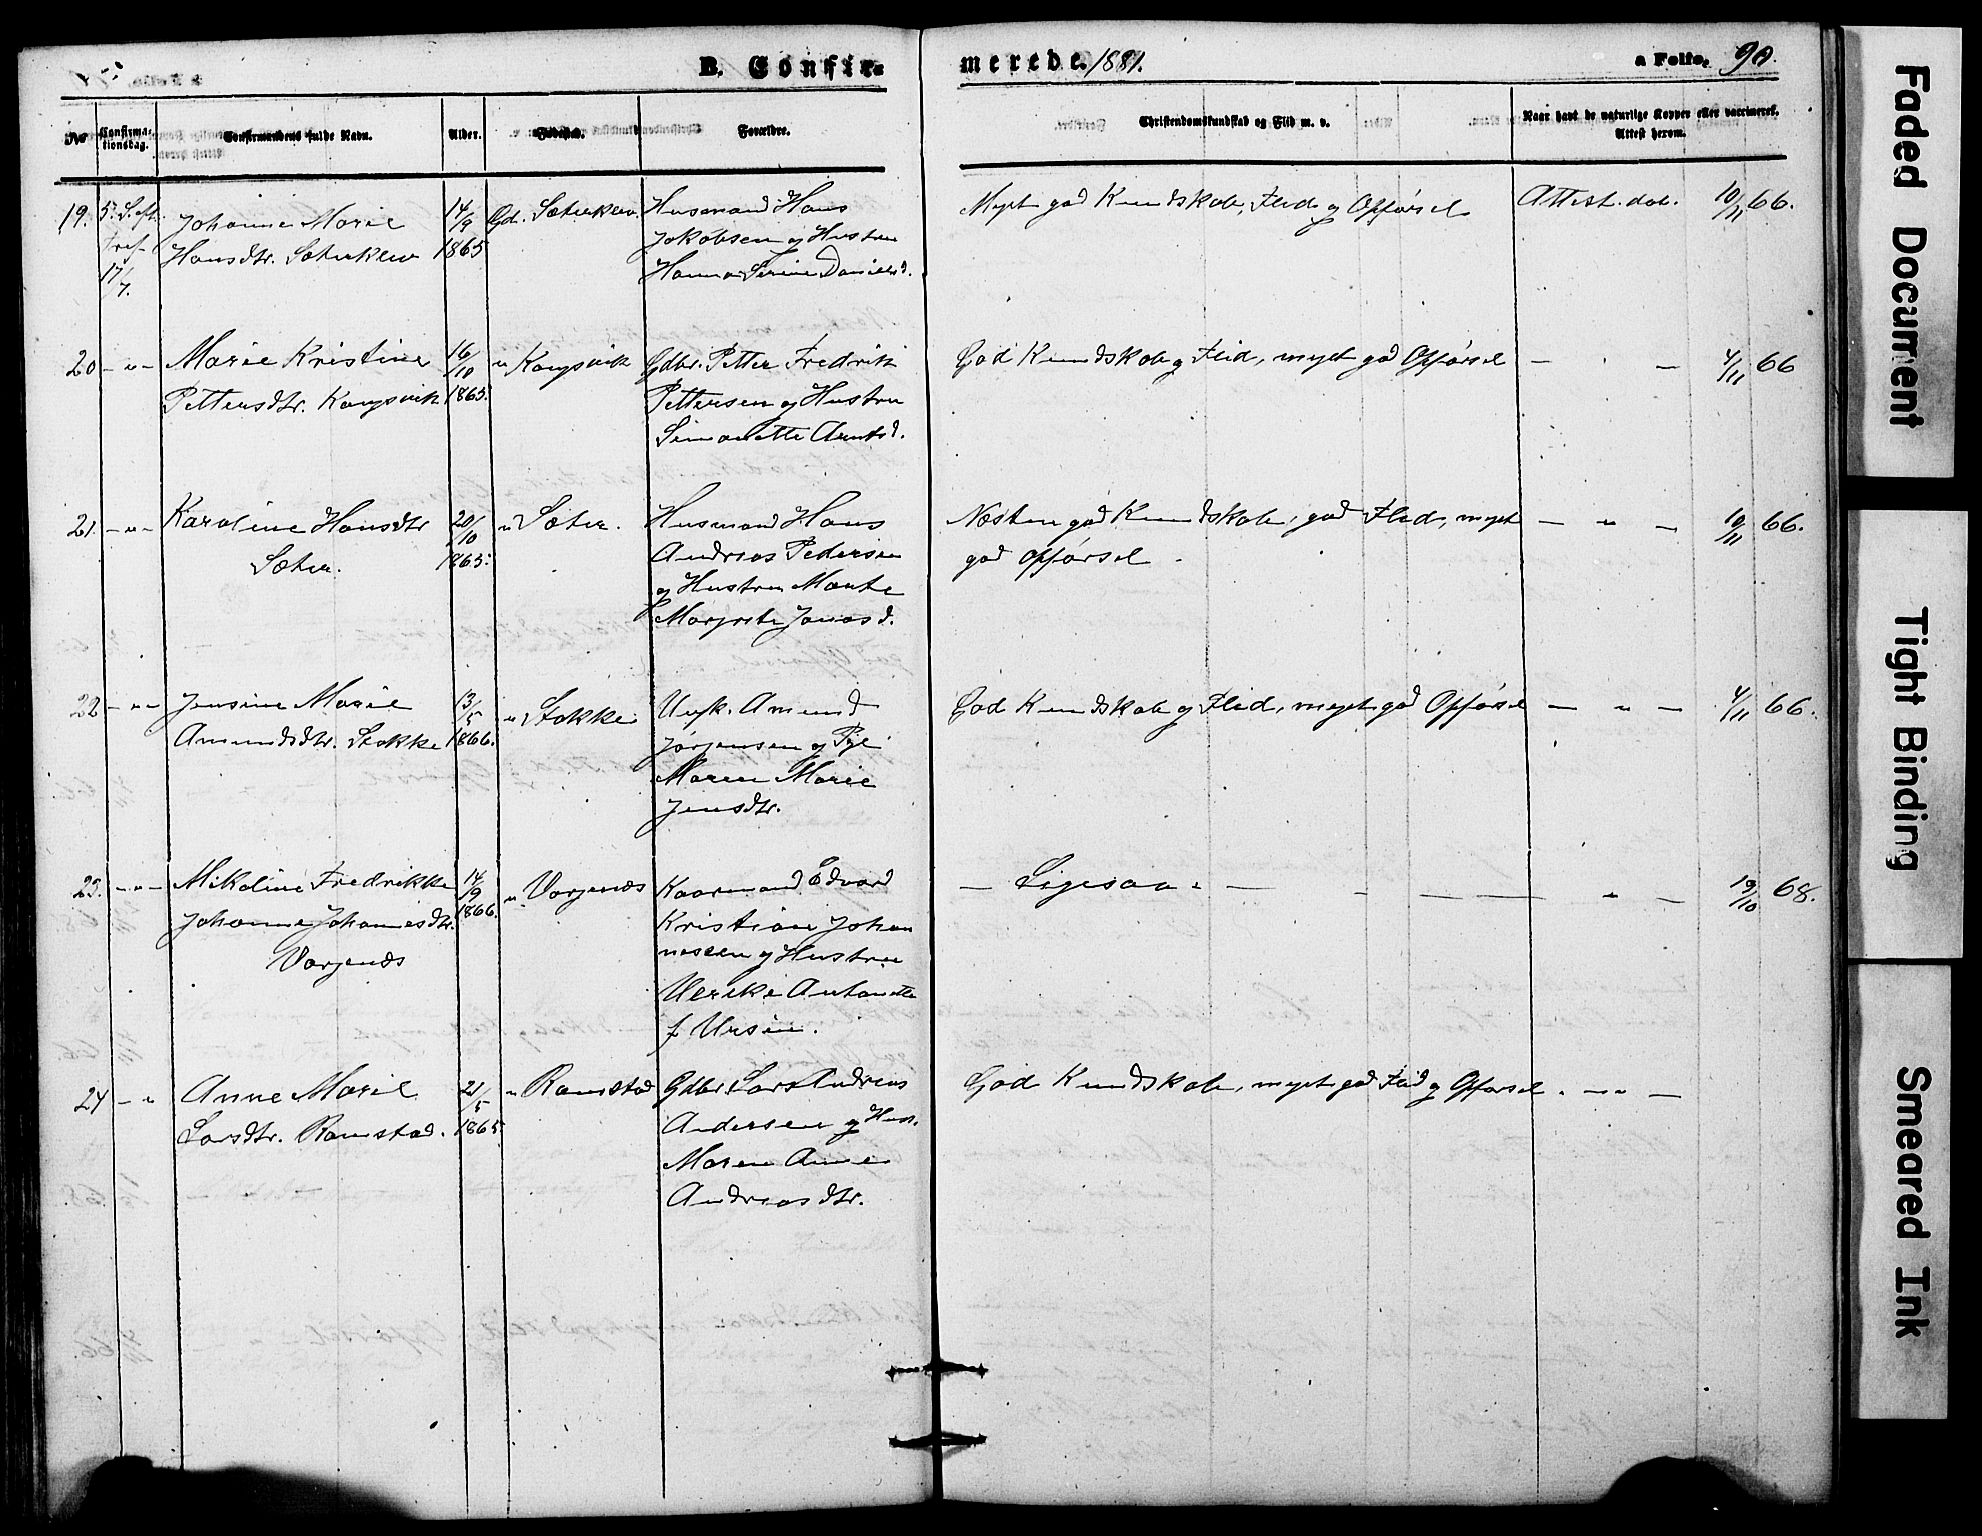 B. Confir-
merede. 1881.
a Folio. 90.
No
Confirma-
tionsdag.
Confirmandens fulde Navn.
Alder.
Fødested.
Forældre.
Christendomskundskab og Flid m. v.
Naar havt de naturlige Kopper eller vaccineret.
Attest herom.
19.
5. S. eft.
Tref.
17/7.
Johanne Marie
Hansdtr. Sæterklev
14/9
1865
Gd. Sæterklev
Husmand Hans
Jakobsen og Hustru
Hanna Serine Danielsd.
Myet god Kundskab, Flid og Opførsel
Attest. dat. 10/11 66.
20 - " -
Marie Kristine
Pettersdtr. Kongsvik
16/10
1865.
" Kongsvik
Gdbr. Petter Fredrik
Pettersen og Hustru
Simonette Arntsd.
God Kundskab og Flid, myet god Opførsel
— " — 4/11 66
21. - " -
Karoline Hansdtr
Sæter.
20/10
1865.
" Sæter.
Husmand Hans
Andreas Pedersen
og Hustru
Margrete Jonasd.
Næsten god Kundskab, god Flid, myet
god Opførsel.
— " — 10/11 66.
22 - " -
Jensine Marie
Amundsdtr. Stokke
13/5
1866.
" Stokke
Ungk. Amund
Jørgensen og Pige
Maren Marie
Jensdtr.
God Kundskab og Flid, myet god Opførsel
— " — 4/11 66.
23. - " -
Mikoline Fredrikke
Johanne Johannesdtr.
14/9
1866.
Kaarmand Edvard
Kristian Johan
nessen og Hustru
Ulrike Antonette
f. Ursin.
— Ligesaa. —
— " — 19/10 68.
24 - "
Anne Marie
Larsdtr. Ramstad.
21/5
1865.
" Ramstad
Gdbr. Lars Andreas
Andersen og Hust.
Maren Anne
Andreasdtr.
God Kundskab, myet god Flid og Opførsel. — " —
Faded Document
Tight Binding
Smeared Ink